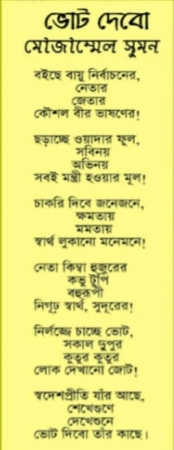 ভোট দেবো
মোজাম্মেল সুমন
বইছে বায়ু নির্বাচনের,
নেতার
জেতার
কৌশল বীর ভাষণের!
ছড়াচ্ছে ওয়াদার ফুল,
সবিনয়
অভিনয়
সবই মন্ত্রী হওয়ার মূল!
চাকরি দিবে জনেজনে,
ক্ষমতায়
মমতায়
স্বার্থ লুকানো মনেমনে!
নেতা কিম্বা হুজুরের
কভু টুপি
বহুরূপী
নিগূঢ় স্বার্থ, সুদূরের!
নির্লজ্জে চাচ্ছে ভোট,
সকাল দুপুর
কুতুর কুতুর
লোক দেখানো জোট!
স্বদেশপ্রীতি যাঁর আছে,
শেখেগুণে
দেখেশুনে
ভোট দিবো তাঁর কাছে।